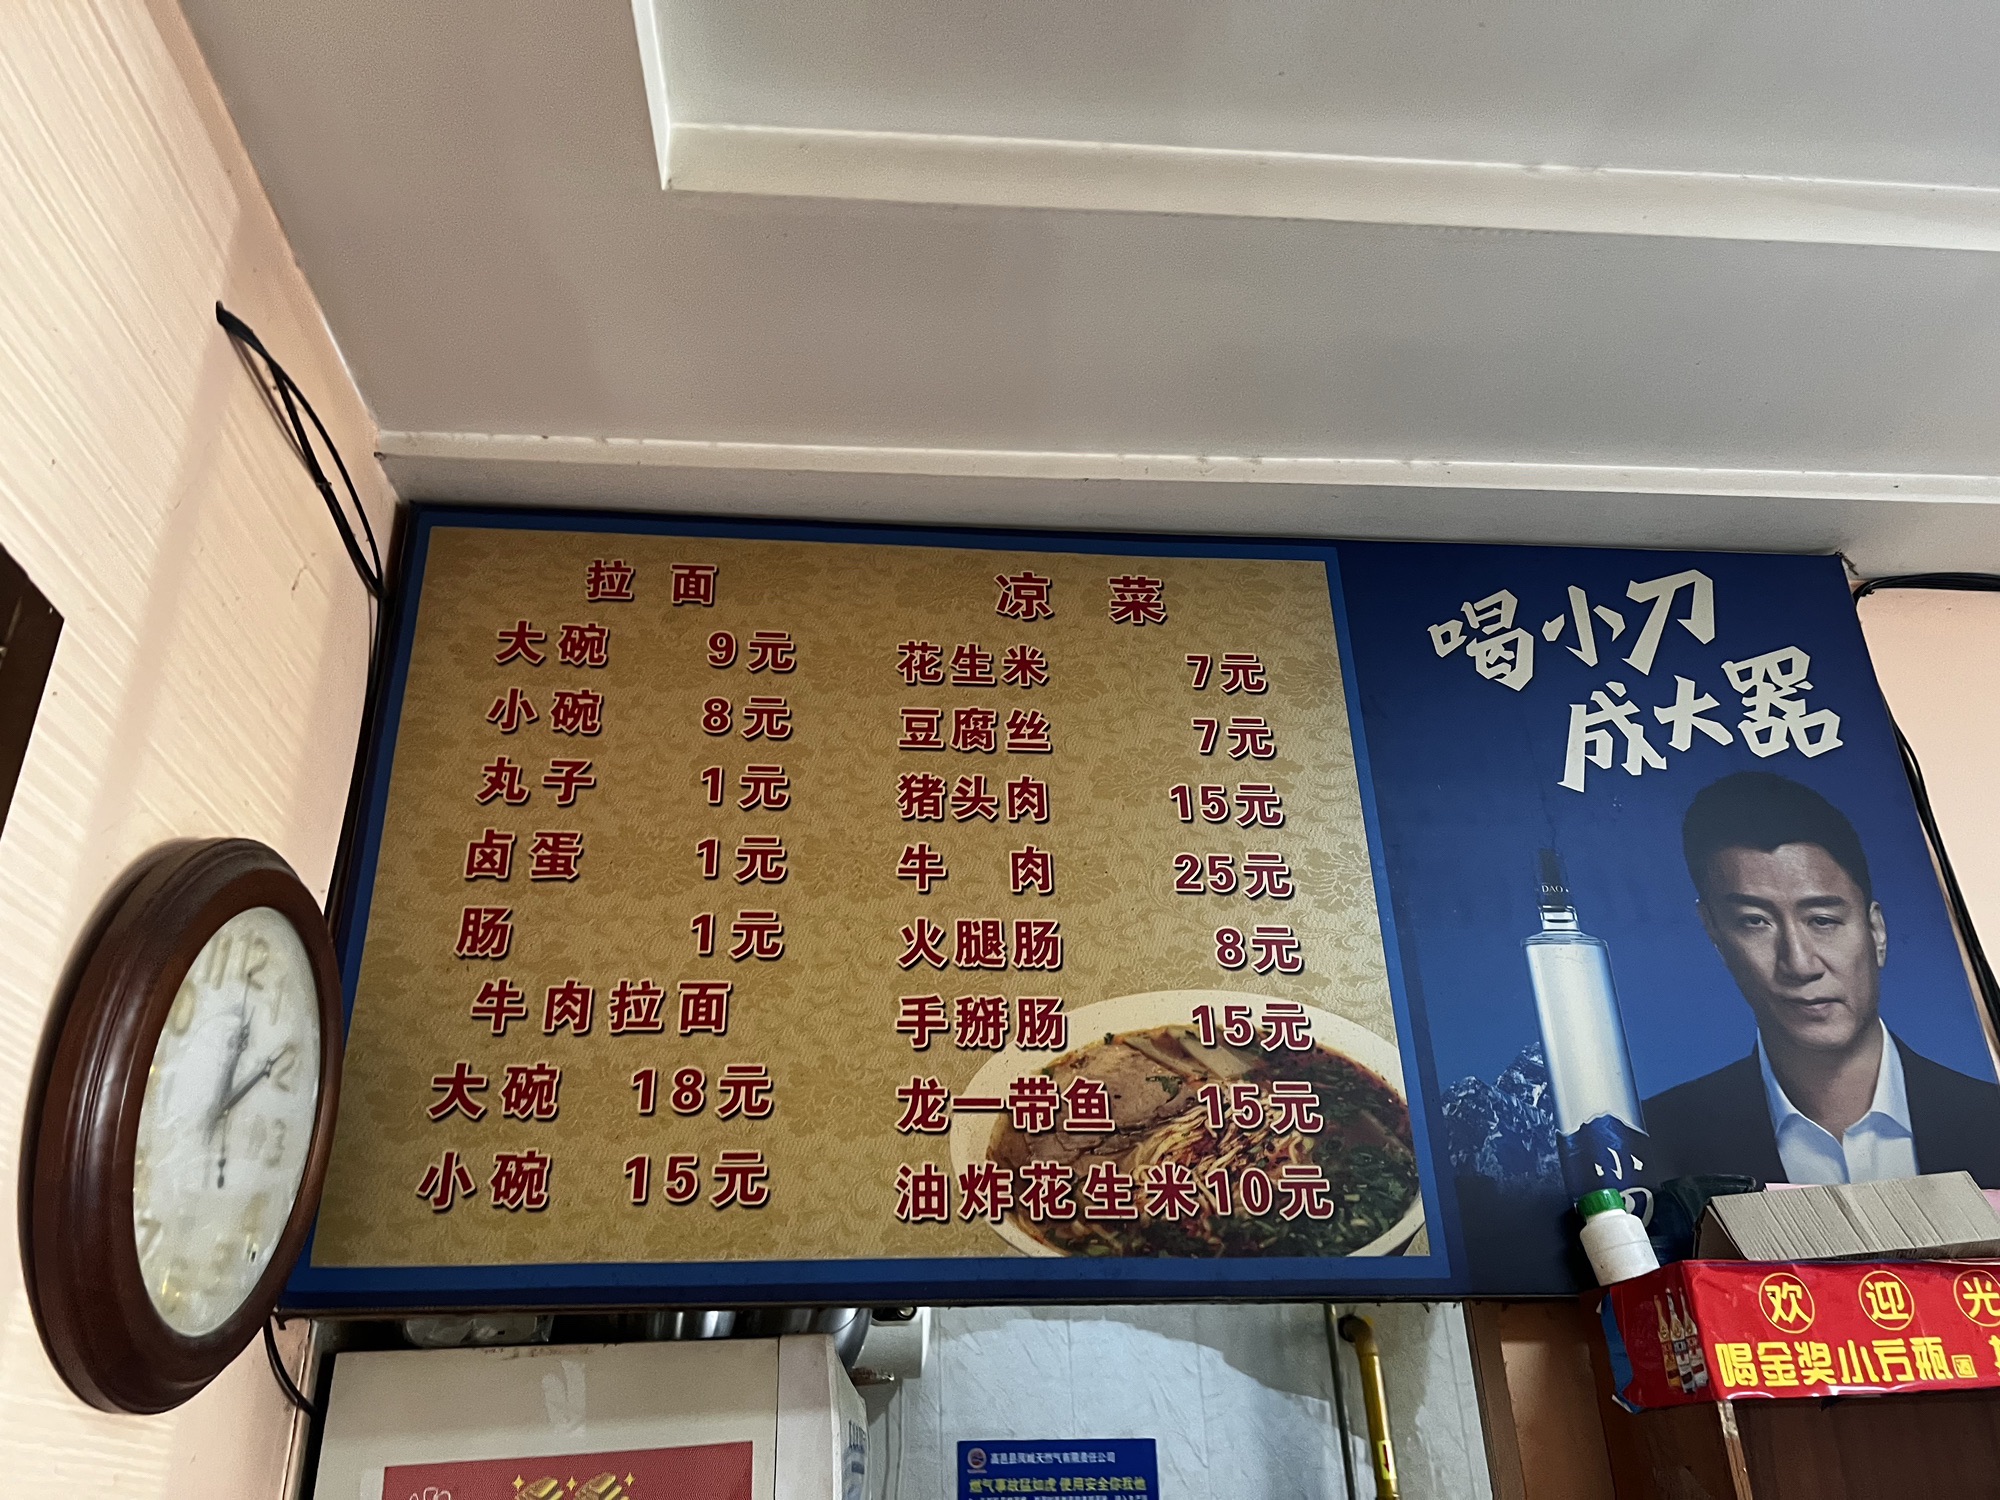 拉面
大碗 9元
小碗 8元
丸子 1元
卤蛋 1元
肠 1元
牛肉拉面
大碗 18元
小碗 15元
凉菜
花生米 7元
豆腐丝 7元
猪头肉 15元
牛肉 25元
火腿肠 8元
手掰肠 15元
龙一带鱼 15元
油炸花生米10元
喝小刀
成大器
DAO
小
刀
欢迎光
喝金奖小方瓶
11 12 1
2
3
天然气有限责任公司
燃气事故猛如虎 使用安全你我他